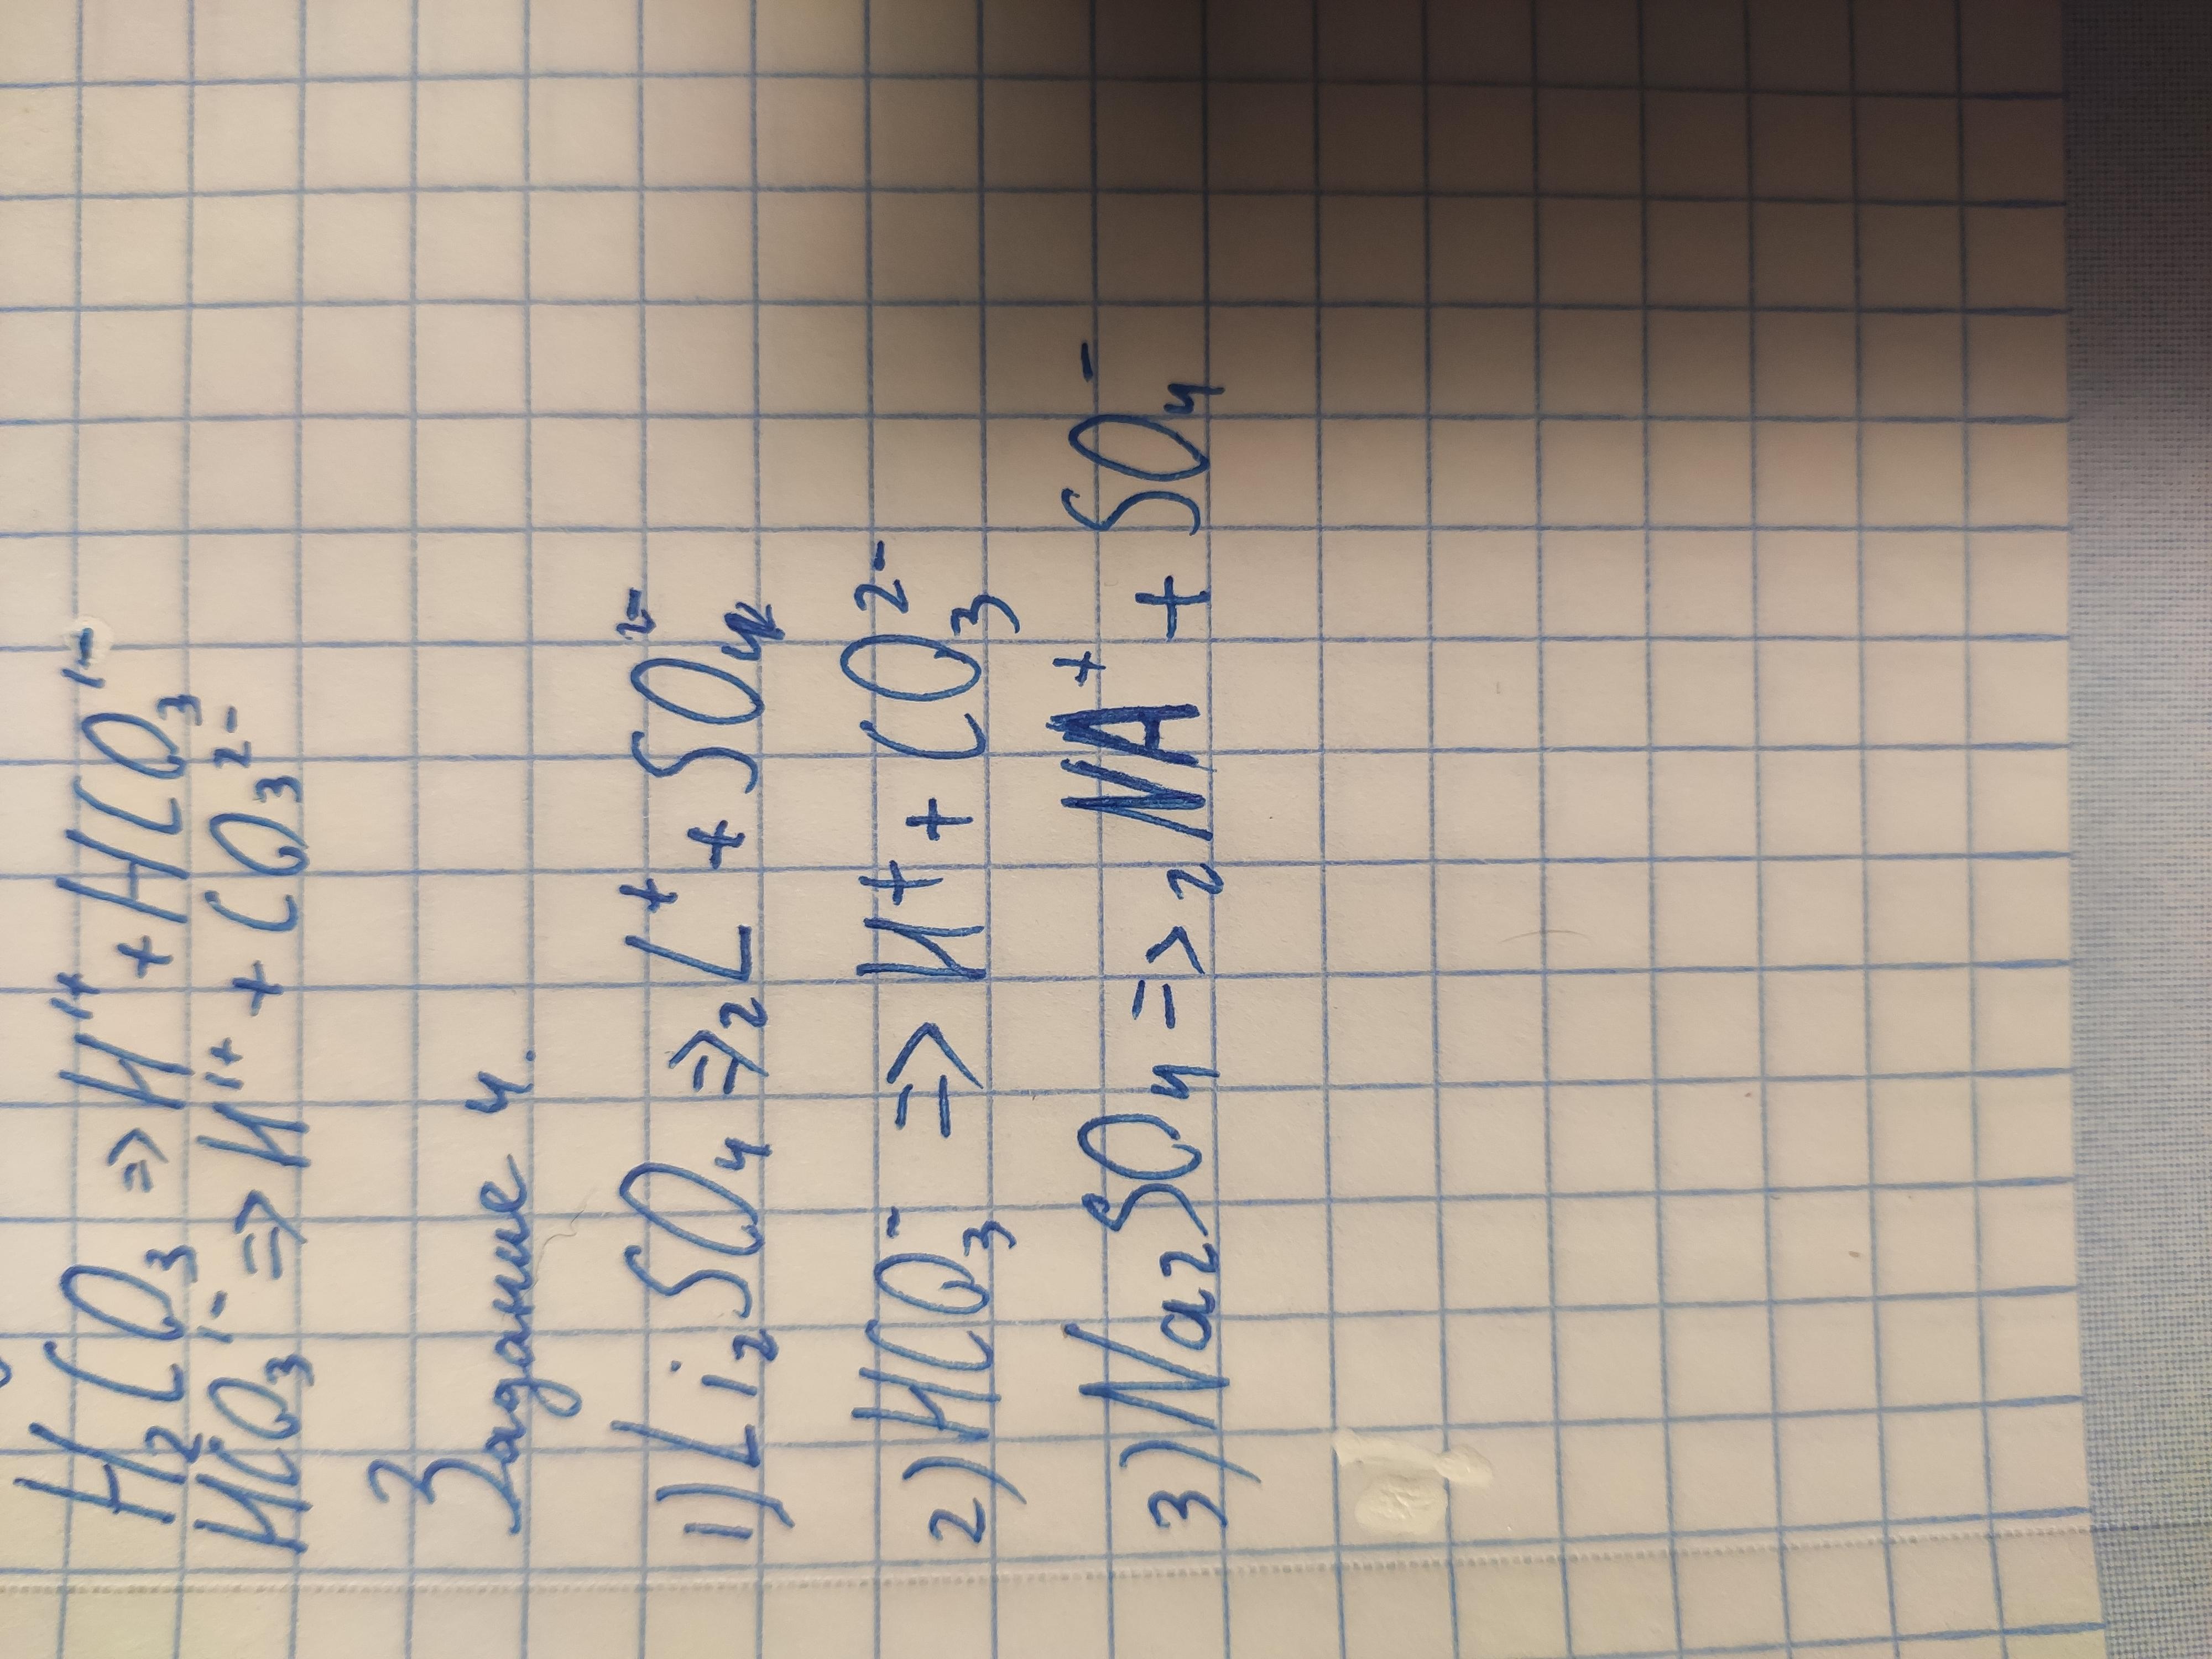 H₂CO₃ => H¹⁺ + HCO₃¹⁻
HCO₃¹⁻ => H¹⁺ + CO₃²⁻
Задание 4.
1) Li₂SO₄ => 2L⁺ + SO₄²⁻
2) HCO₃⁻ => H⁺ + CO₃²⁻
3) Na₂SO₄ => 2NA⁺ + SO₄⁻